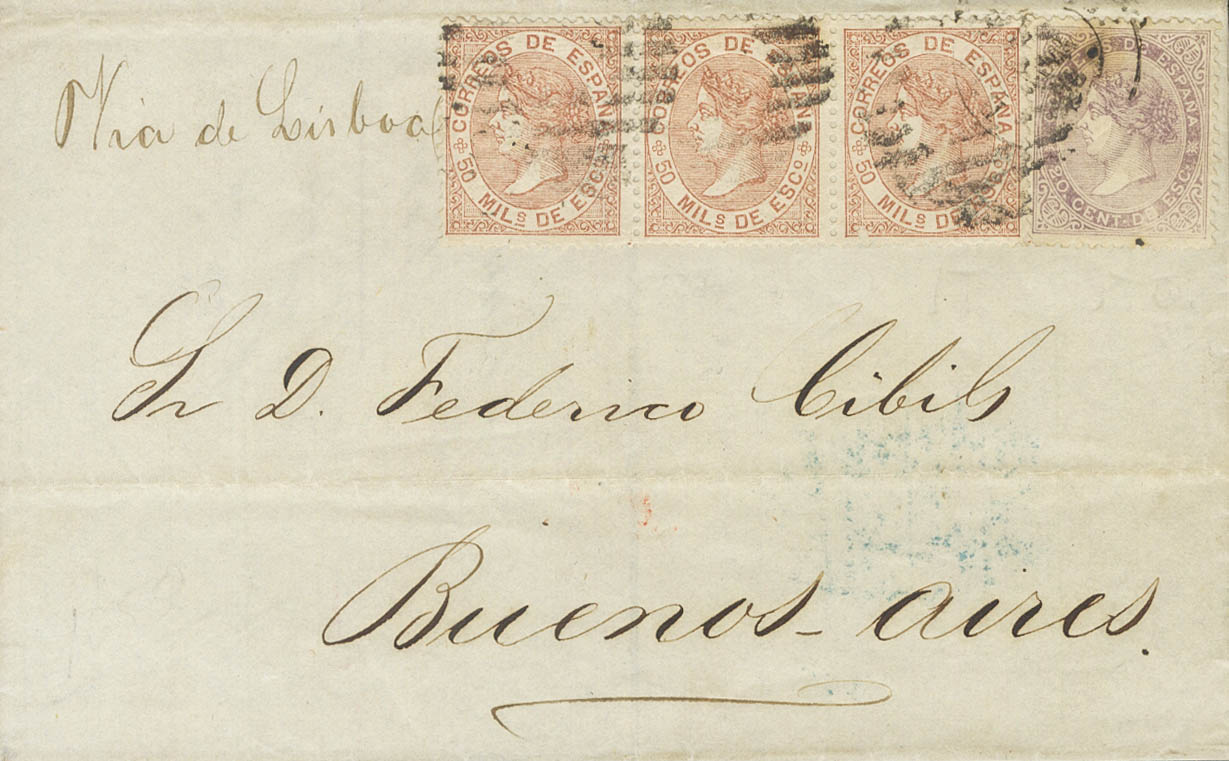 Via de Lisboa
CORREOS DE ESPAÑA
50 MILS DE ESCO
CORREOS DE ESPAÑA
50 MILS DE ESCO
CORREOS DE ESPAÑA
50 MILS DE
DE ESPAÑA
20 CENT. DE ESCO
Sr D. Federico Cibils
Buenos-aires.